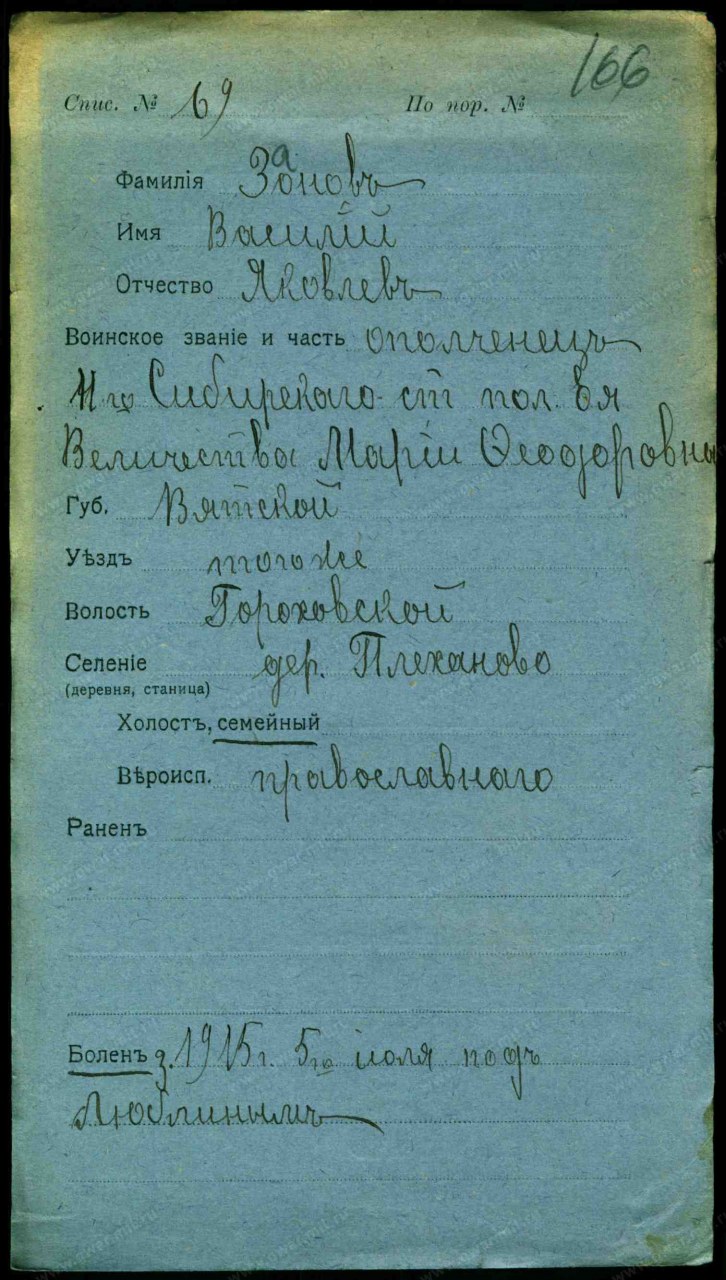 166
Спис. № 69 По пор. №
Фамилія Зоновъ
Имя Василій
Отчество Яковлевъ
Воинское званіе и часть ополченецъ
11го Сибирскаго ст пол. Ея
Величества Маріи Ѳеодоровны
Губ. Вятской
Уѣздъ того же
Волость Гороховской
Селеніе дер. Плеханово
(деревня, станица)
Холостъ, семейный
Вѣроисп. православнаго
Раненъ
Боленъ 1915 г. 5го іюля подъ
Люблинымъ